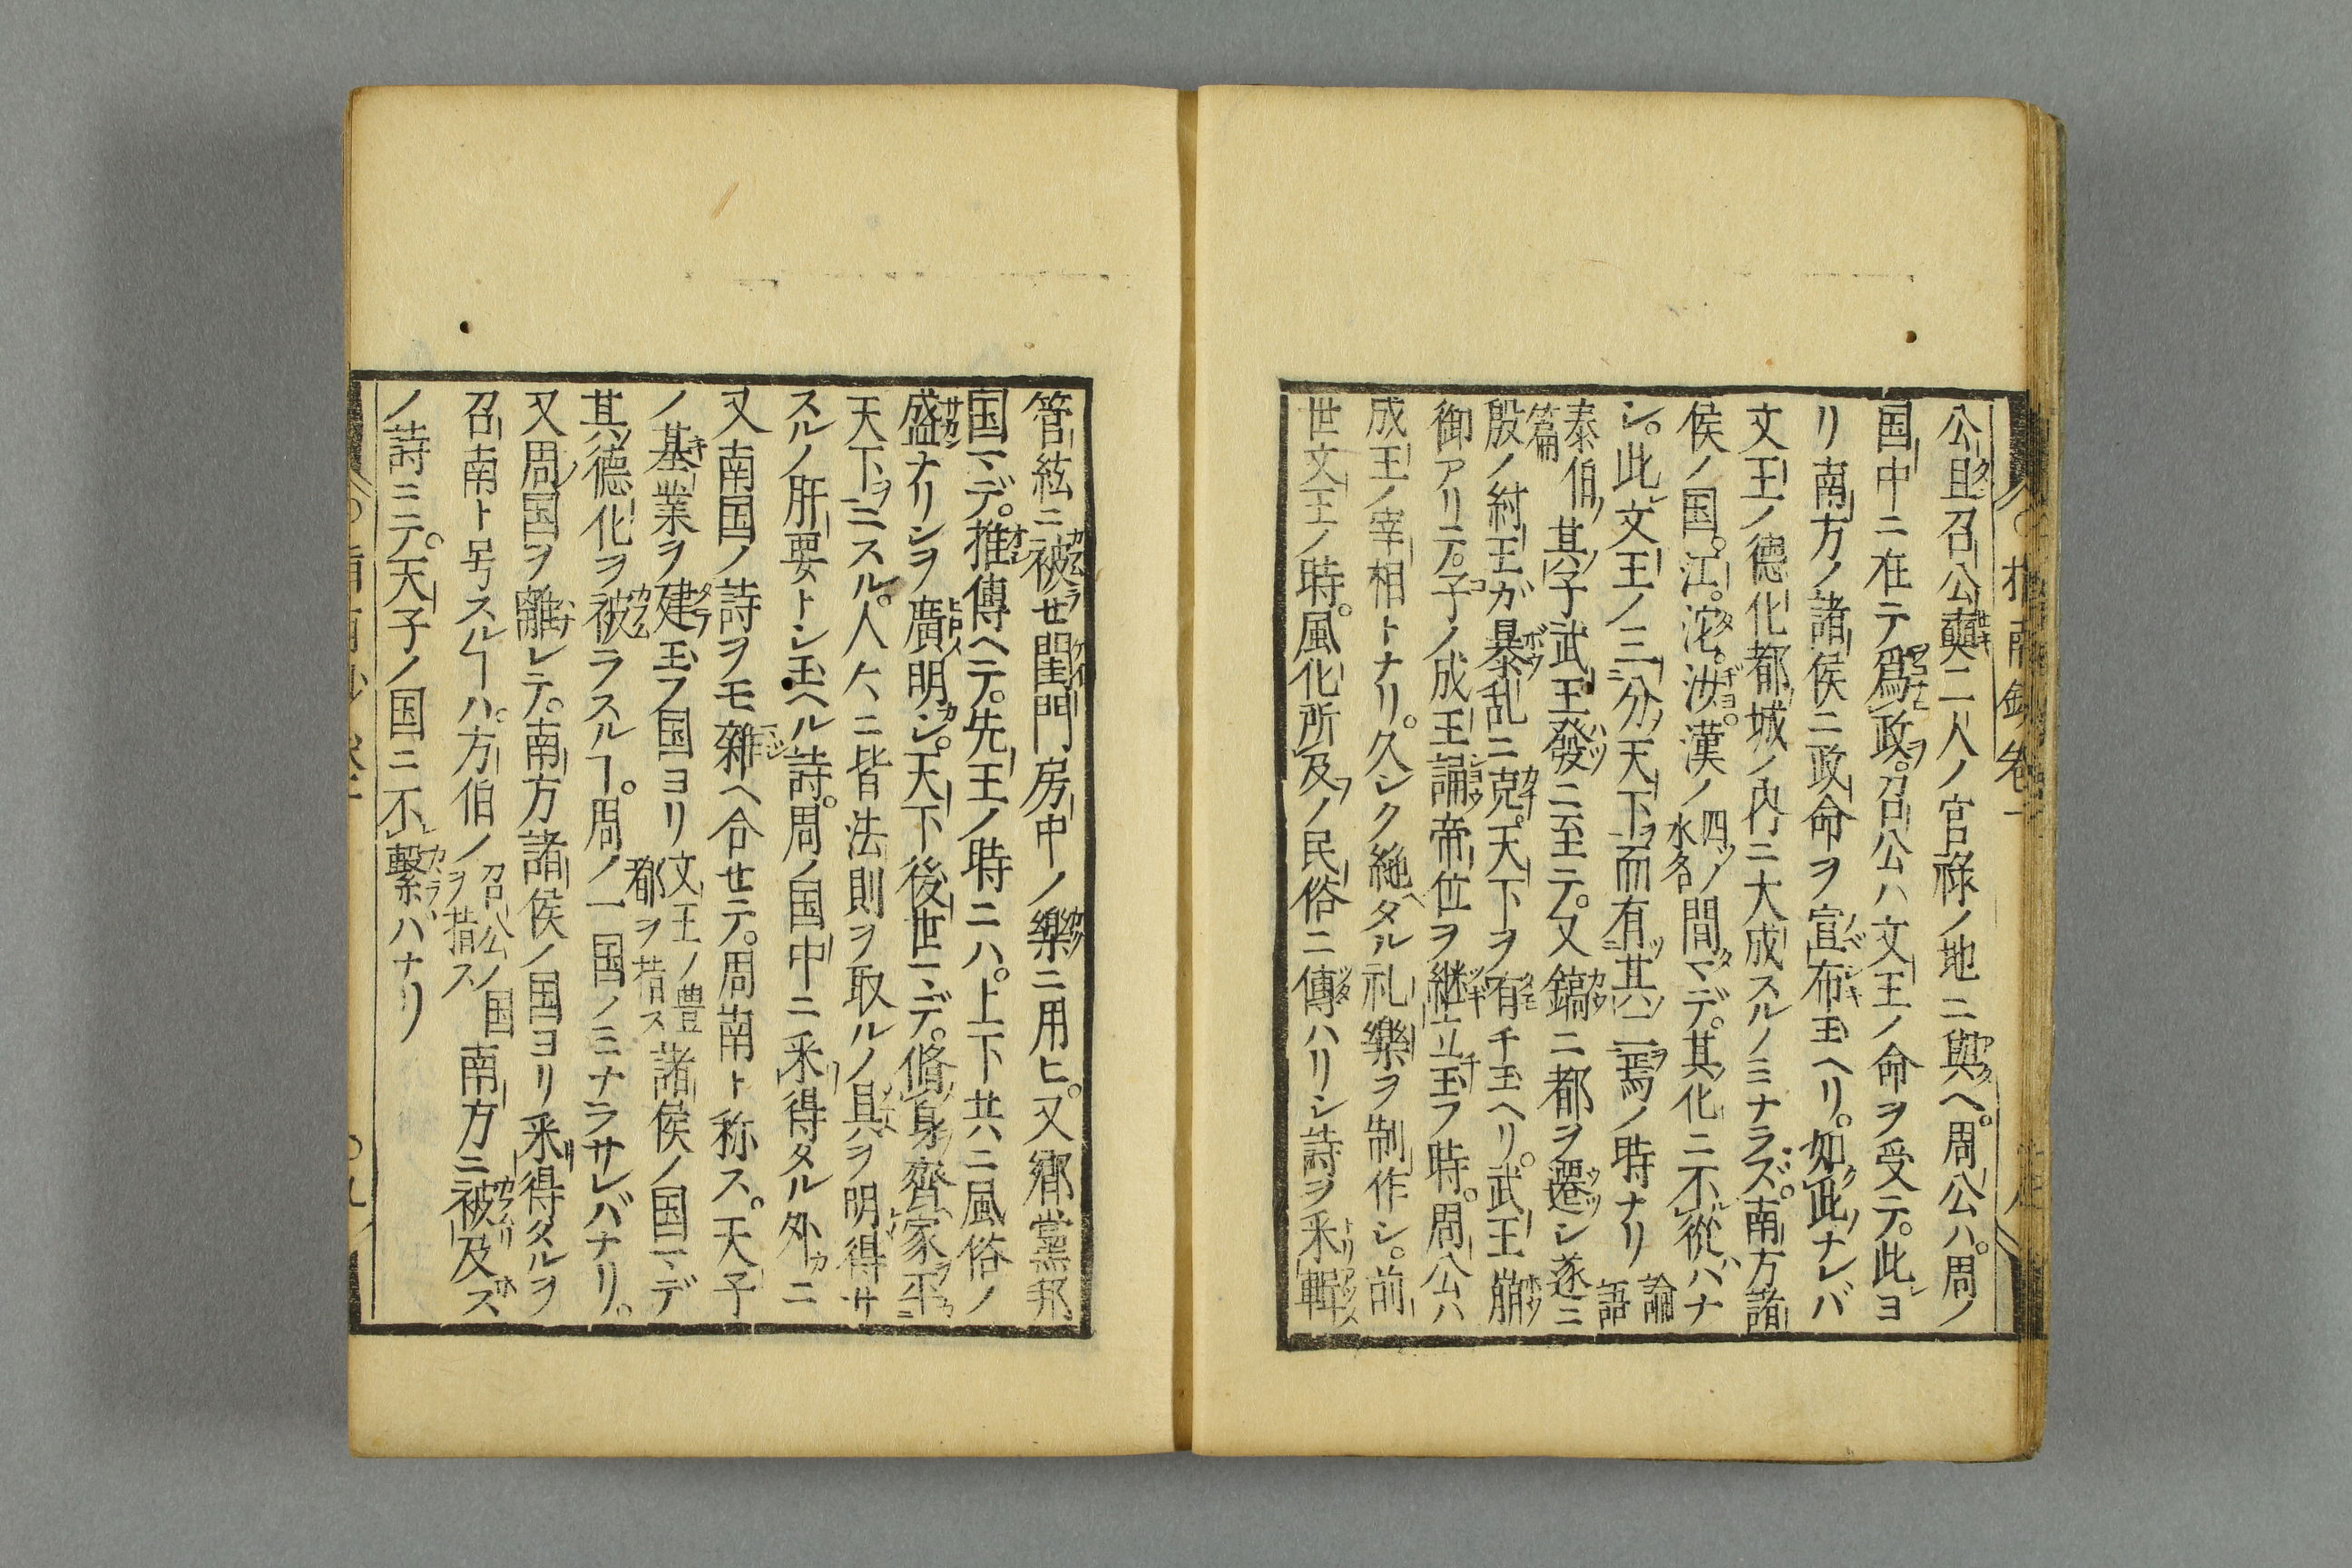 公旦召公奭二人ノ官祿ノ地ニ與ヘ。周公ハ。周ノ
国中ニ在テ爲政。召公ハ文王ノ命ヲ受テ。此ヨ
リ南方ノ諸侯ニ政命ヲ宣布玉ヘリ。如此ナレバ
文王ノ德化都城ノ内ニ大成スルノミナラズ。南方諸
侯ノ国。江。沱。汝。漢ノ四ツノ水名間マデ。其化ニ不從ハナ
シ。此文王ノ三分天下而有其二焉ノ時ナリ論語
泰伯篇其子武王發ニ至テ。又鎬ニ都ヲ遷シ遂ニ
殷ノ紂王ガ暴乱ニ克。天下ヲ有チ玉ヘリ。武王崩
御アリテ。子ノ成王誦帝位ヲ継立玉フ時。周公ハ
成王ノ宰相トナリ。久シク絶タル礼樂ヲ制作シ。前
世文王ノ時。風化所及ノ民俗ニ傳ハリシ詩ヲ采輯
管絃ニ被セ閨門房中ノ樂ニ用ヒ。又郷黨邦
国マデ。推傳ヘテ。先王ノ時ニハ。上下共ニ風俗ノ
盛ナリシヲ廣明シ。天下後世マデ。脩身齊家平
天下ヲニスル。人々ニ皆法則ヲ取ルノ具ヲ明得サ
スルノ肝要トシ玉ヘル詩。周ノ国中ニ采得タル外ニ
又南国ノ詩ヲモ雜ヘ合セテ。周南ト称ス。天子
ノ基業ヲ建玉フ国ヨリ文王ノ豊都ヲ指ス諸侯ノ国マデ
其德化ヲ被ラスルヿ。周ノ一国ノミナラサレバナリ。
又周国ヲ離レテ。南方諸侯ノ国ヨリ采得タルヲ
召南ト号スルヿハ。方伯ノ召公ノ国ヲ指ス南方ニ被及ス
ノ詩ニテ。天子ノ国ニ不繋ハナリ